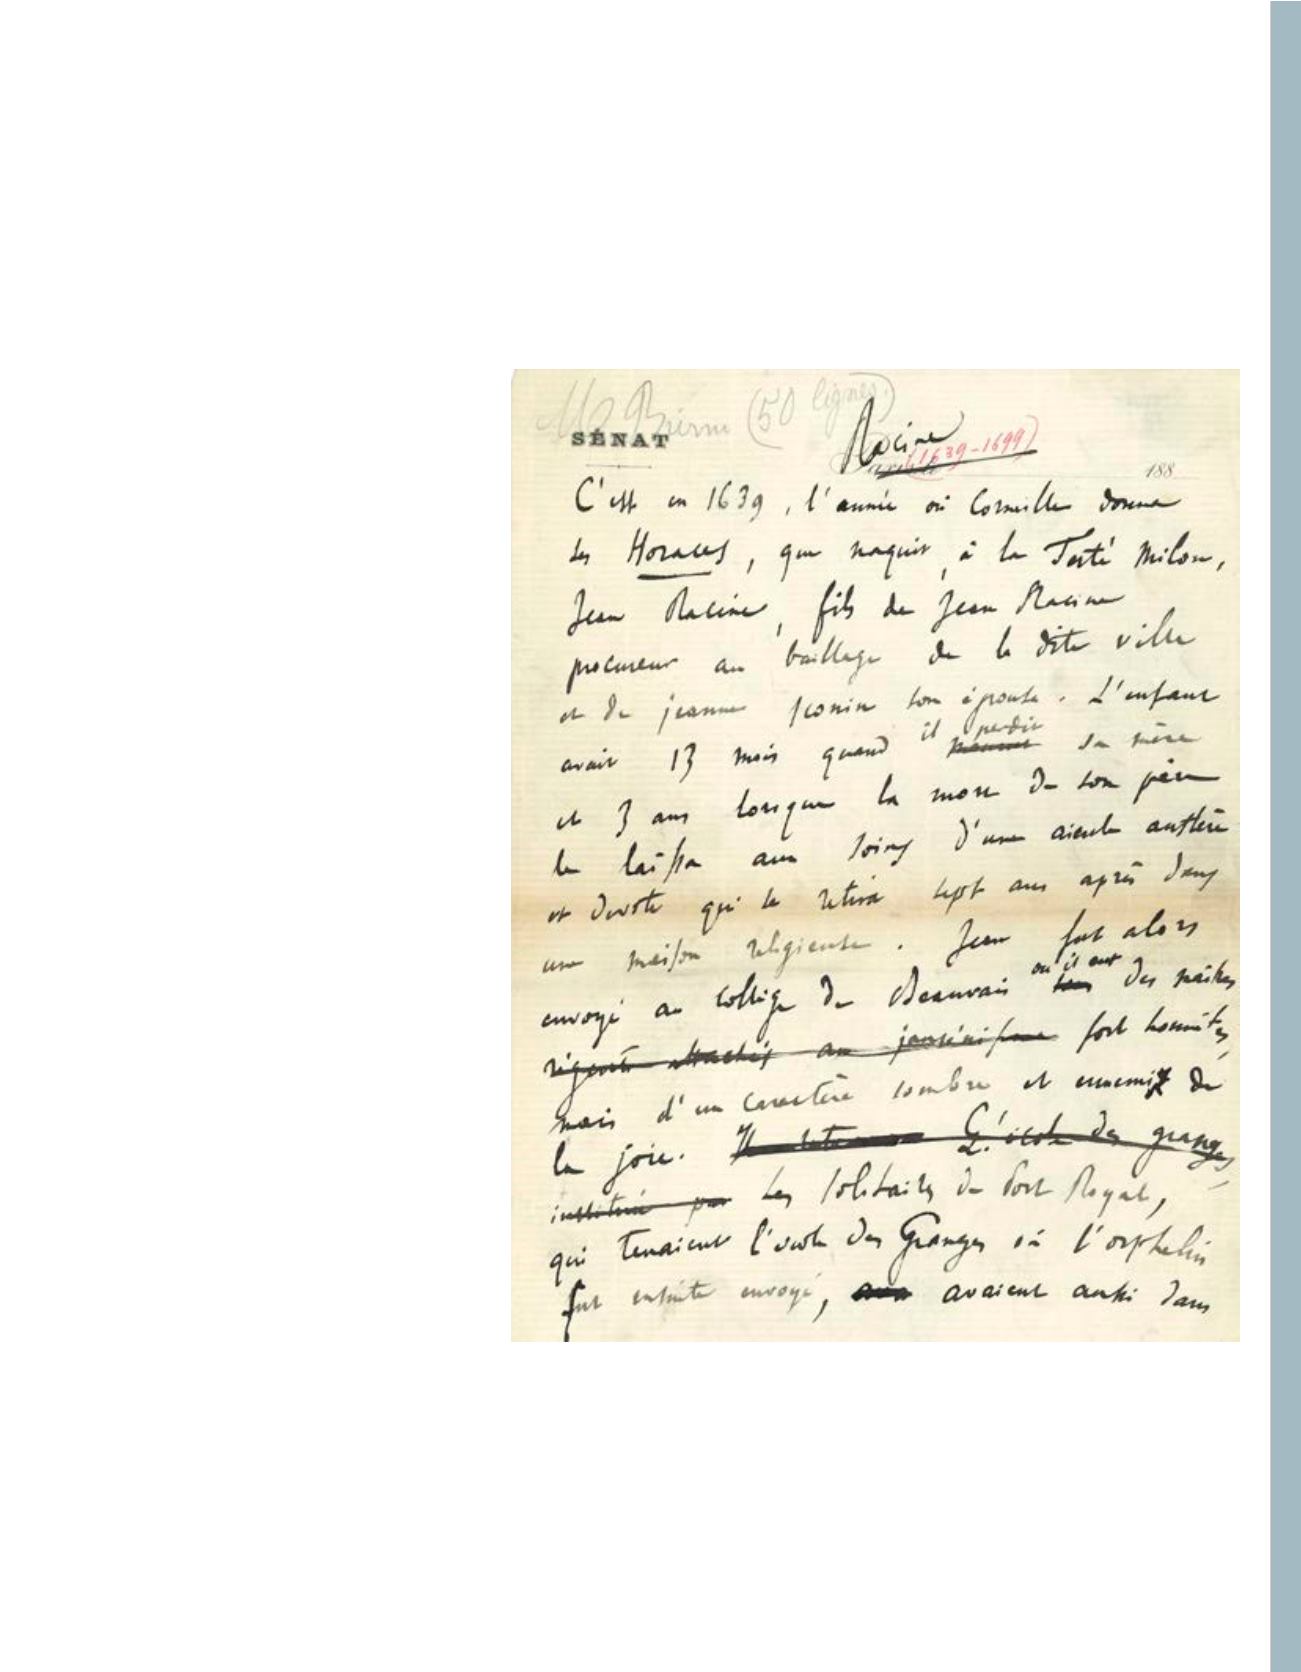 (50 lignes.)
SÉNAT
Racine
(1639-1699)
188
C'est en 1639, l'année où Corneille donna
les Horaces, que naquit, à la Ferté Milon,
Jean Racine, fils de Jean Racine
procureur au baillage de la dite ville
et de jeanne Sconin son épouse. L'enfant
avait 13 mois quand il perdit sa mère
et 3 ans lorsque la mort de son père
le laissa aux soins d'une aieule austère
et devote qui se retira sept ans après dans
une maison religieuse. Jean fut alors
envoyé au collège de Beauvais où il eut des maîtres
attachés au jansénisme fort honnêtes,
mais d'un caractère sombre et ennemis de
la joie. L'école des granges
institué par Les solitaires de Port Royal,
qui tenaient l'école des Granges où l'orphelin
fut ensuite envoyé, avaient aussi dans